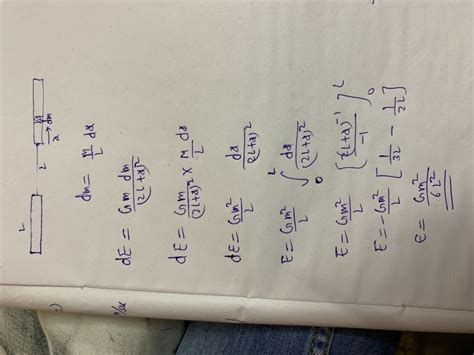 L
L
x
dm
dm = m/L dx
dE = Gm dm/(2L+x)²
dE = Gm/(2L+x)² × M dx/L
dE = Gm²/L dx/(2L+x)²
E = Gm²/L ∫₀ᴸ dx/(2L+x)²
E = Gm²/L [(2L+x)⁻¹/-1]₀ᴸ
E = -Gm²/L [1/3L - 1/2L]
E = Gm²/6L²